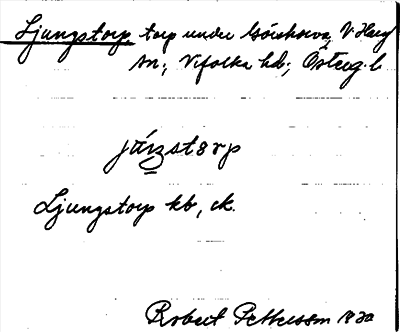 Ljungstorp torp under Görshorva, V Harg
sn; Vifolka hd; Österg. l.
járstorp
Ljungstorp kb, ck.
Robert Pettersson 1930